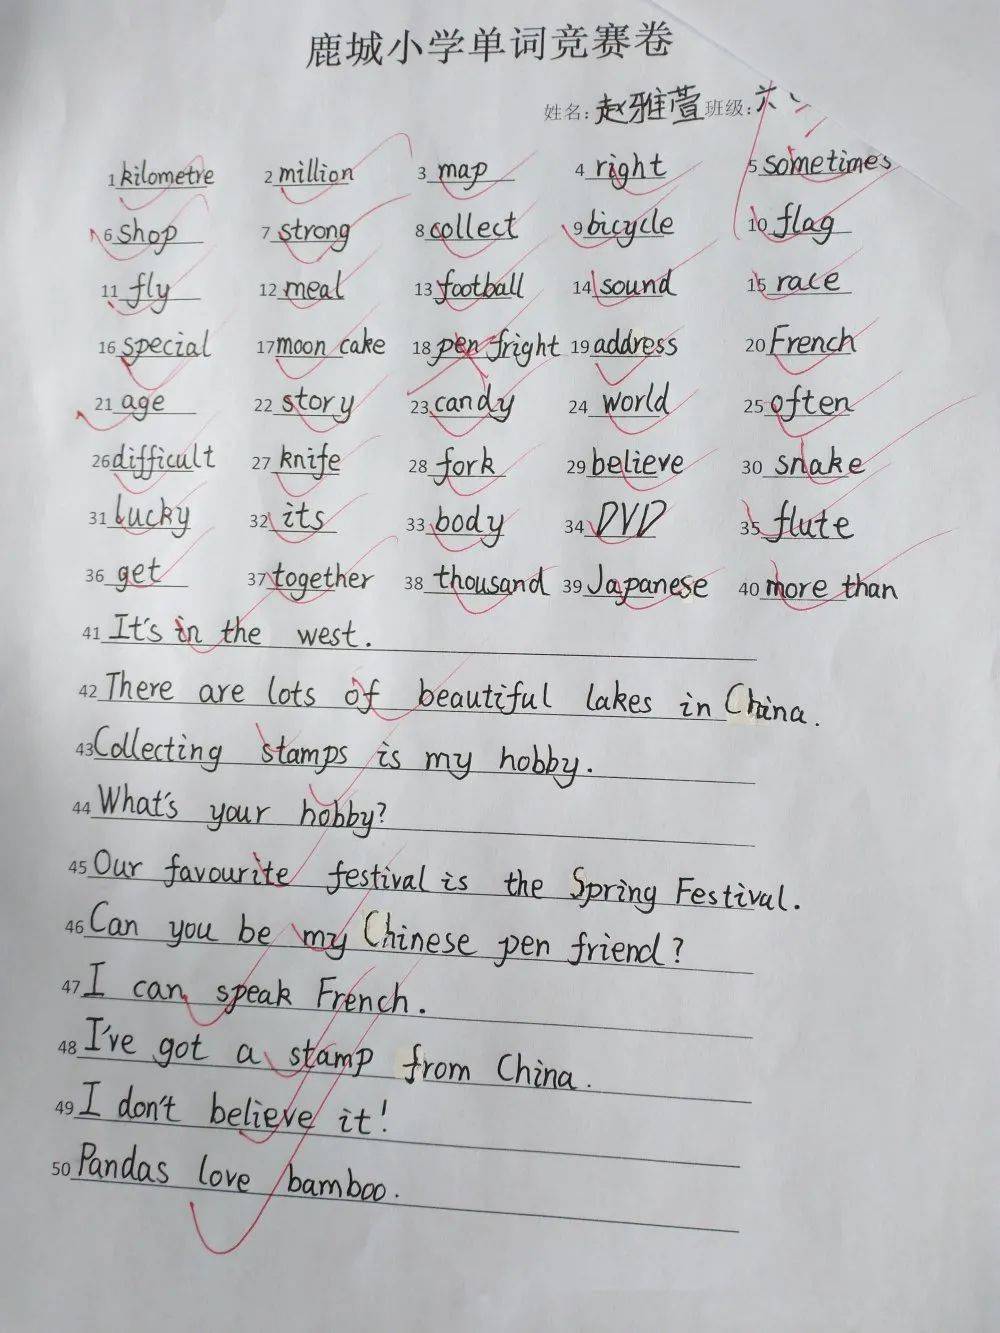 鹿城小学单词竞赛卷
姓名: 赵雅萱 班级:
1 kilometre 2 million 3 map 4 right 5 sometimes
6 shop 7 strong 8 collect 9 bicycle 10 flag
11 fly 12 meal 13 football 14 sound 15 race
16 special 17 moon cake 18 pen fright 19 address 20 French
21 age 22 story 23 candy 24 world 25 often
26 difficult 27 knife 28 fork 29 believe 30 snake
31 lucky 32 its 33 body 34 DVD 35 flute
36 get 37 together 38 thousand 39 Japanese 40 more than
41 It's in the west.
42 There are lots of beautiful lakes in China.
43 Collecting stamps is my hobby.
44 What's your hobby?
45 Our favourite festival is the Spring Festival.
46 Can you be my Chinese pen friend?
47 I can speak French.
48 I've got a stamp from China.
49 I don't believe it!
50 Pandas love bamboo.